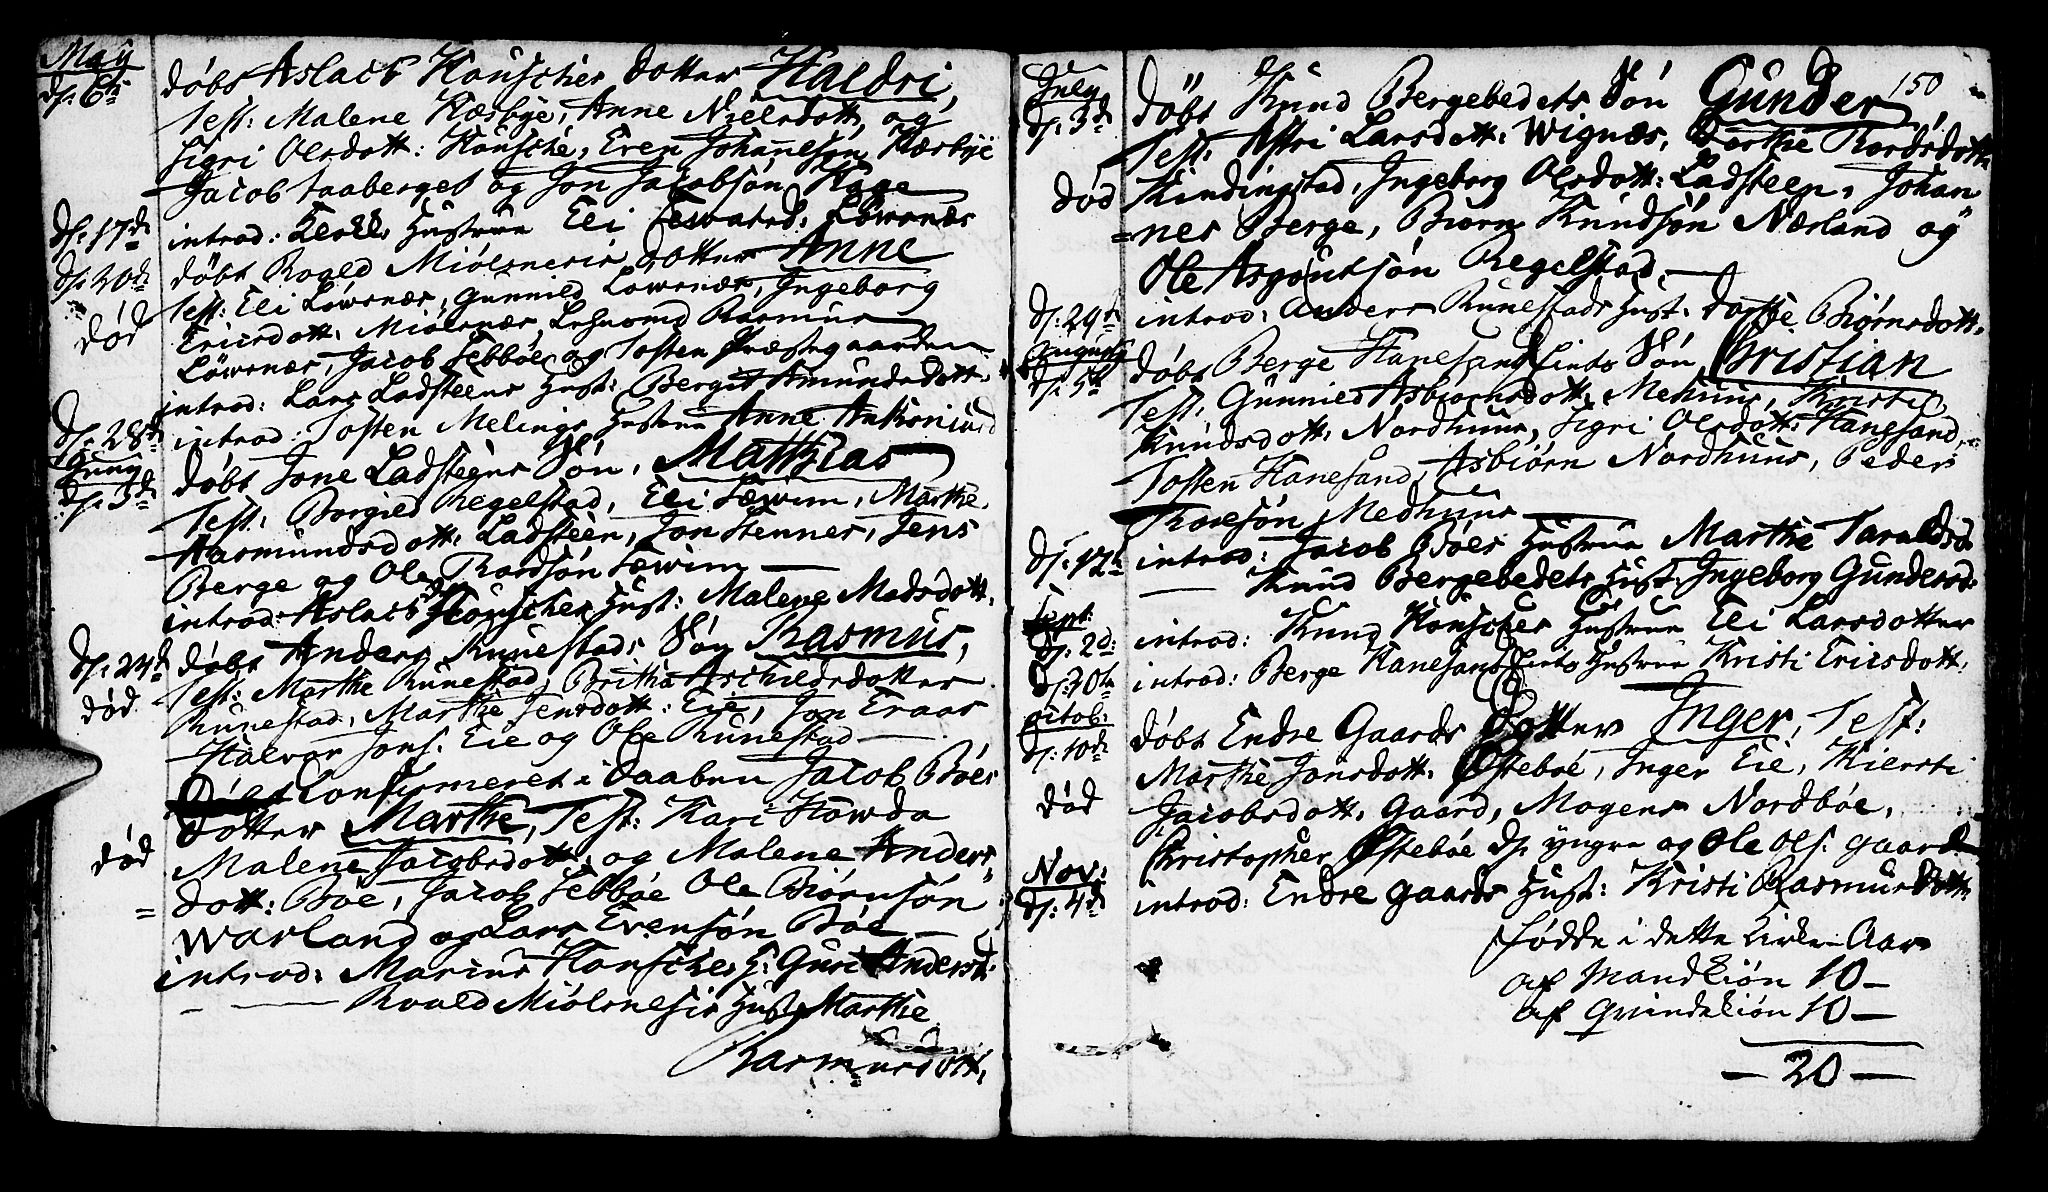 May
d: 6te døbt Aslach Housches dotter Haldri,
Test: Malene Hæsbye, Anne Nielsdott, og
Sigri Olsdott: Housche, Even Johannesøn Hæsbye
Jacob Faaberget og Jon Jacobsøn Hage
d: 17de introd: Hustrue Eli Løwsnæs
d: 20de døbt Roald Miølsnesis dotter Anne
Test: Eli Løwsnæs, Gunnild Lowsnæs, Ingeborg
død Ericsdott: Miølsnæs, Rasmus
Løwsnæs, Jacob Sebbøe og Tosten Præstegaarden
introd: Lars Ladsteens Hust: Berget Amundsdott.
d: 28de introd: Tosten Melings Hustrue Anne
Juny
d: 3de døbt Jone Ladsteens Søn, Matthias
Test: Borgild Regelstad, Eli Sæwim, Marthe
Aasmundsdott: Ladsteen, Jon Stennes, Jens
Berge og Ole Thordsøn Sæwim
introd: Aslach Housches Hust: Malene Madsdott.
d: 24de døbt Anders Runestads Søn Rasmus,
død Test: Marthe Runestad, Britha Aschildsdotter
Runestad, Marthe Jensdott: Eie, Jon Eraas
Halvor Jons: Eie og Ole Runestad
Døbt Confirmeret i Daaben Jacob Bøes
dotter Marthe, Test: Kari Howda
død Malene Jacobsdott, og Malene Anders
= dott: Bøe, Jacob Sebbøe Ole Biørnsøn
Warland og Lars Evensøn Bøe
introd: Marius Housches H: Guri Andersd:
Roald Miølsnesis Hust Marthe
Rasmusdott,
150
July
d: 3de døbt Knud Bergebedets Søn Gunder
Test: Astri Larsdott: Wignæs, Dorthe Thordsdott
død Kindingstad, Ingeborg Olsdott: Ladsteen, Johan
= nes Berge, Biørn Knudsøn Nærland og
Ole Asgoutsøn Regelstad
d: 29de introd: Anders Runestads Hust: Dorthe Biørnsdott.
Augusty
d: 5te døbt Berge Hanesands Søn Christian
Test: Gunnild Asbiørnsdott: Mehuus, Kristi
Knudsdott: Nordhuus, Sigri Olsdott: Hanesand,
Tosten Hanesand, Asbiørn Nordhuus, Peder
Medhuus
d: 12te introd: Jacob Bøes Hustrue Marthe Taraldsd.
Knud Bergebedets Hust: Ingeborg Gundersd.
Sept:
d: 2d: introd: Knud Housches Hustrue Eli Larsdotter
d: 30te introd: Berge Hanesands Hustrue Kristi Ericsdott.
octob:
d: 10de døbt Endre Gaards Dotter Inger, Test:
Marthe Jonsdott. Østebøe, Inger Eie, Kiersti
død Jacobsdott. Gaard, Mogens Nordbøe,
Christopher Østebøe d: yngre og Ole Ols: Gaard
Nov:
d: 4de introd: Endre Gaards Hust: Kristi Rasmusdott
fødde i dette Kirke-Aar
af Mandkiøn 10 —
af Qvindekiøn 10 —
— 20 —